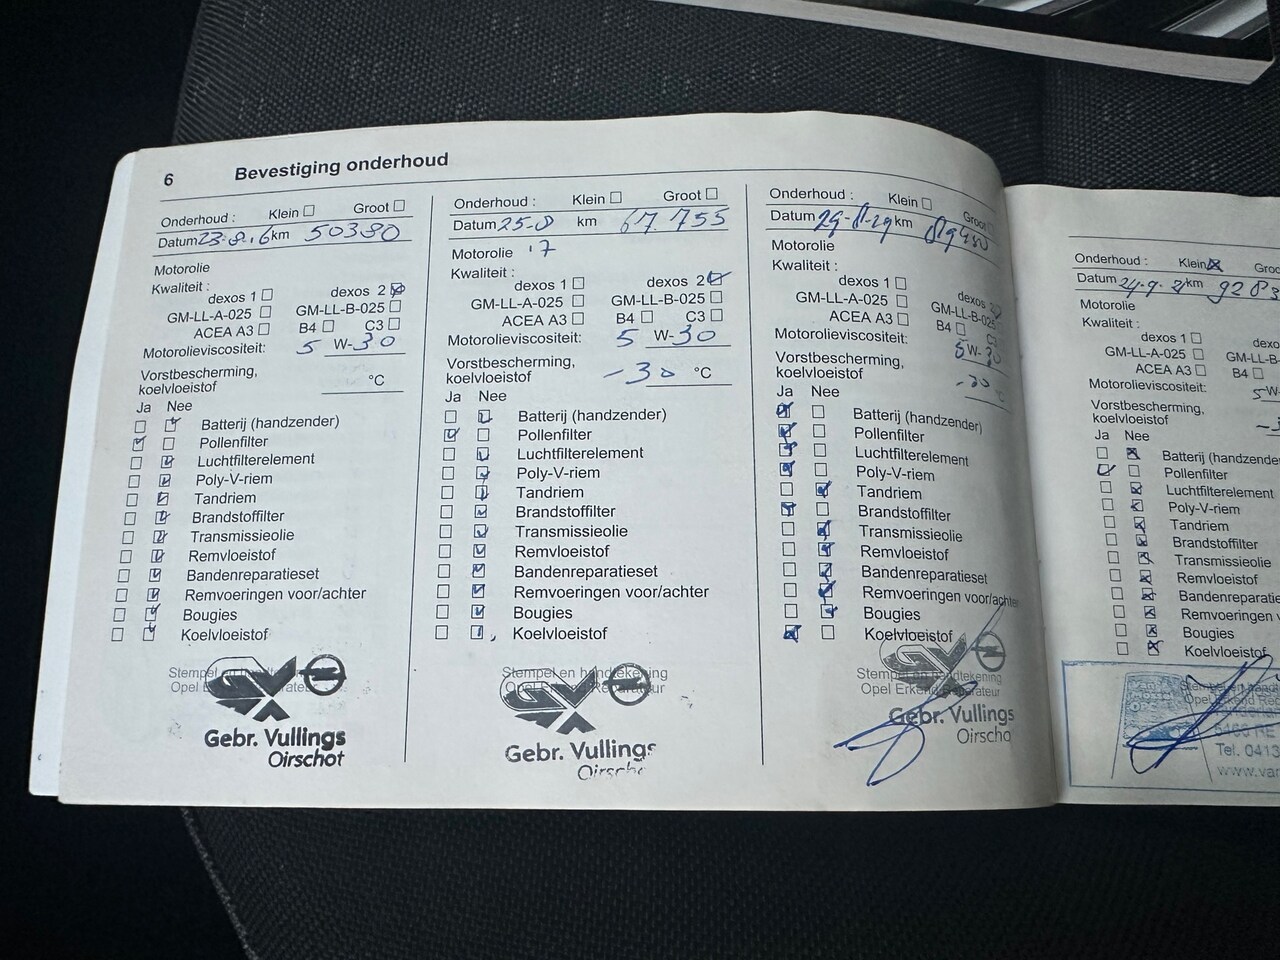 6 Bevestiging onderhoud
Onderhoud : Klein Groot
Datum 23.8.16 km 50380
Motorolie
Kwaliteit :
dexos 1 dexos 2
GM-LL-A-025 GM-LL-B-025
ACEA A3 B4 C3
Motorolieviscositeit: 5 W-30
Vorstbescherming,
koelvloeistof °C
Ja Nee
Batterij (handzender)
Pollenfilter
Luchtfilterelement
Poly-V-riem
Tandriem
Brandstoffilter
Transmissieolie
Remvloeistof
Bandenreparatieset
Remvoeringen voor/achter
Bougies
Koelvloeistof
Stempel en handtekening
Opel Erkend Reparateur
Gebr. Vullings
Oirschot
Onderhoud : Klein Groot
Datum 25-8 km 67.755
Motorolie '17
Kwaliteit :
dexos 1 dexos 2
GM-LL-A-025 GM-LL-B-025
ACEA A3 B4 C3
Motorolieviscositeit: 5 W-30
Vorstbescherming,
koelvloeistof -30 °C
Ja Nee
Batterij (handzender)
Pollenfilter
Luchtfilterelement
Poly-V-riem
Tandriem
Brandstoffilter
Transmissieolie
Remvloeistof
Bandenreparatieset
Remvoeringen voor/achter
Bougies
Koelvloeistof
Stempel en handtekening
Opel Erkend Reparateur
Gebr. Vullings
Oirscho
Onderhoud : Klein Groot
Datum km
Motorolie
Kwaliteit :
dexos 1 dexos 2
GM-LL-A-025 GM-LL-B-025
ACEA A3 B4 C3
Motorolieviscositeit: 5 W-30
Vorstbescherming,
koelvloeistof -30 °C
Ja Nee
Batterij (handzender)
Pollenfilter
Luchtfilterelement
Poly-V-riem
Tandriem
Brandstoffilter
Transmissieolie
Remvloeistof
Bandenreparatieset
Remvoeringen voor/achter
Bougies
Koelvloeistof
Stempel en handtekening
Opel Erkend Reparateur
Gebr. Vullings
Oirscho
Onderhoud : Klein Groo
Datum km 9283
Motorolie
Kwaliteit :
dexos 1 dexo
GM-LL-A-025 GM-LL-B-
ACEA A3 B4
Motorolieviscositeit: 5 W-
Vorstbescherming,
koelvloeistof
Ja Nee
Batterij (handzende
Pollenfilter
Luchtfilterelement
Poly-V-riem
Tandriem
Brandstoffilter
Transmissieolie
Remvloeistof
Bandenreparatie
Remvoeringen vo
Bougies
Koelvloeistof
Tel. 0413
www.van